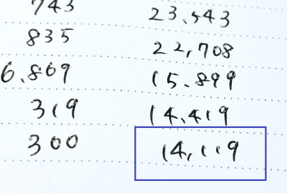 743 23.543
835 22,708
6.869 15.899
319 14.419
300 14,119